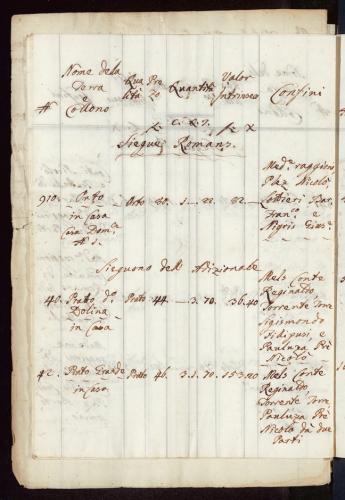 Nome dela Terra e Collono
#
Qua lità
Pre zo
Quantità
Valor Intrinseco
Confini
Siegue Romans.
910. Orto in Casa Casa Dom.a # 1. Orto 80. 1. 22. 22.
Med.a raggion
Plaz Nicolò
Lottieri Bar.
Fran.co e
Nigris Gias.o
Sieguono del Adizionale
40. Prato d.o Dolina in Casa Prato 44. 3. 70. 36.40
Mels Conte
Reginaldo
Torrente Torre
Sigismondo
e
Pauluza Pre
Nicolò
42. Prato Grande in Casa Prato 46. 3.1.70. 153.20
Mels Conte
Reginaldo
Torrente Torre
Pauluza Pre
Nicolo da due
Parti